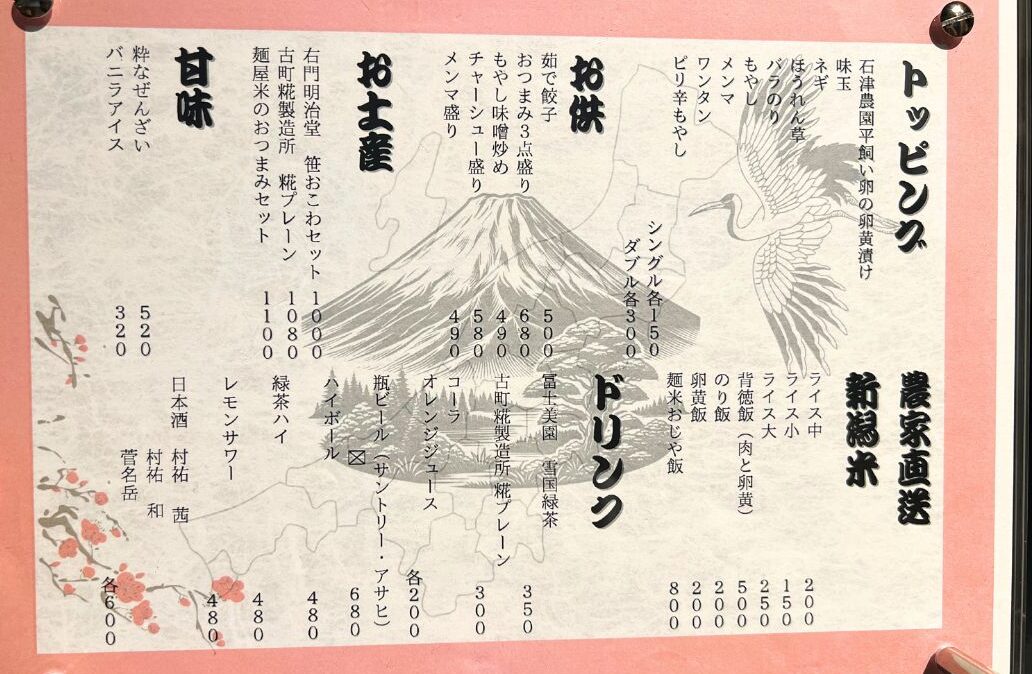 トッピング
石津農園平飼い卵の卵黄漬け
味玉
ネギ
ほうれん草
バラのり
もやし
メンマ
ワンタン
ピリ辛もやし
シングル各150
ダブル各300
お供
茹で餃子 500
おつまみ3点盛り 680
もやし味噌炒め 490
チャーシュー盛り 580
メンマ盛り 490
お土産
右門明治堂 笹おこわセット 1000
古町糀製造所 糀プレーン 1080
麺屋米のおつまみセット 1100
甘味
粋なぜんざい 520
バニラアイス 320
農家直送
新潟米
ライス中 200
ライス小 150
ライス大 250
背徳飯(肉と卵黄) 500
のり飯 200
卵黄飯 200
麺米おじや飯 800
ドリンク
冨士美園 雪国緑茶 350
古町糀製造所 糀プレーン 300
コーラ
オレンジジュース 各200
瓶ビール(サントリー・アサヒ) 680
ハイボール 480
緑茶ハイ 480
レモンサワー 480
日本酒 村祐 茜
村祐 和
菅名岳 各600